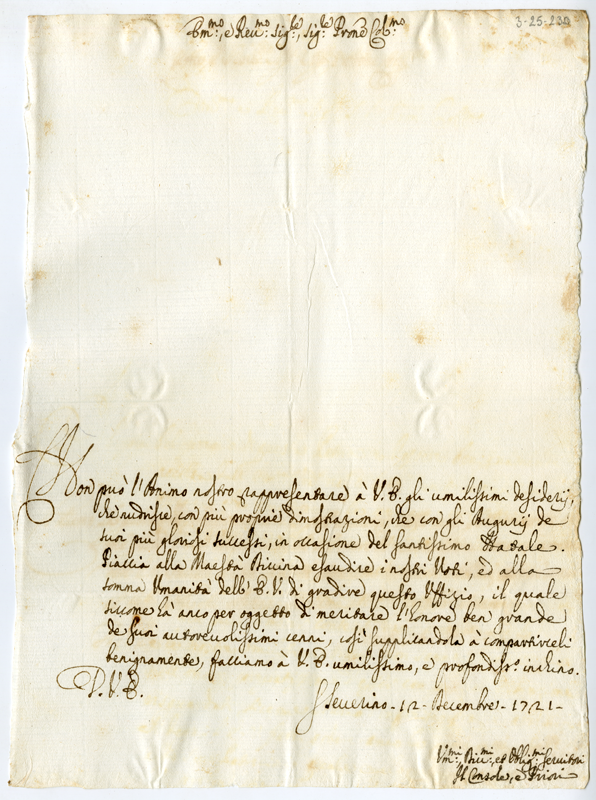 3-25-230
Em:mo, e Reu:mo Sig:re, Sig:re Prone Col:mo
Non può l'Animo nostro rappresentare à V. E. gli umilissimi desiderij,
che nudrisce con più proprie dimostrazioni, che con gli Augurij de
suoi più gloriosi successi, in occasione del Santissimo Natale.
Piaccia alla Maestà Diuina esaudire i nostri Voti, ed alla
somma Umanità dell' E. V. di gradire questo Uffizio, il quale
siccome hà anco per oggetto di meritare l'honore ben grande
de suoi autoreuolissimi cenni, così supplicandola à compartirceli
benignamente, facciamo à V. E. umilissimo, e profondiss:o inchino.
D. V. E.
S Seuerino - 12 - Decembre - 1721 -
Um:mi, Diu:mi, et Oblig:mi Seruitori
Il Console, e Priori